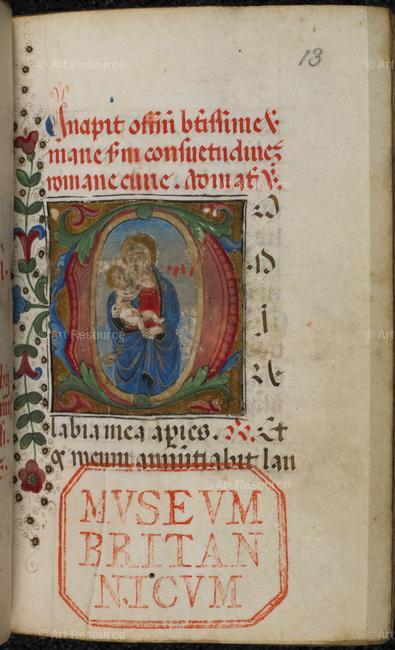 13
Incipit offitiū btissime v̄
marie sm̄ consuetudinēz
romane curie. Ad mat̄. v̄.
D
D
I
N
E
labia mea apies. R. Et
os meum annūtiabit lau
MVSEVM
BRITAN
NICVM
© Art Resource